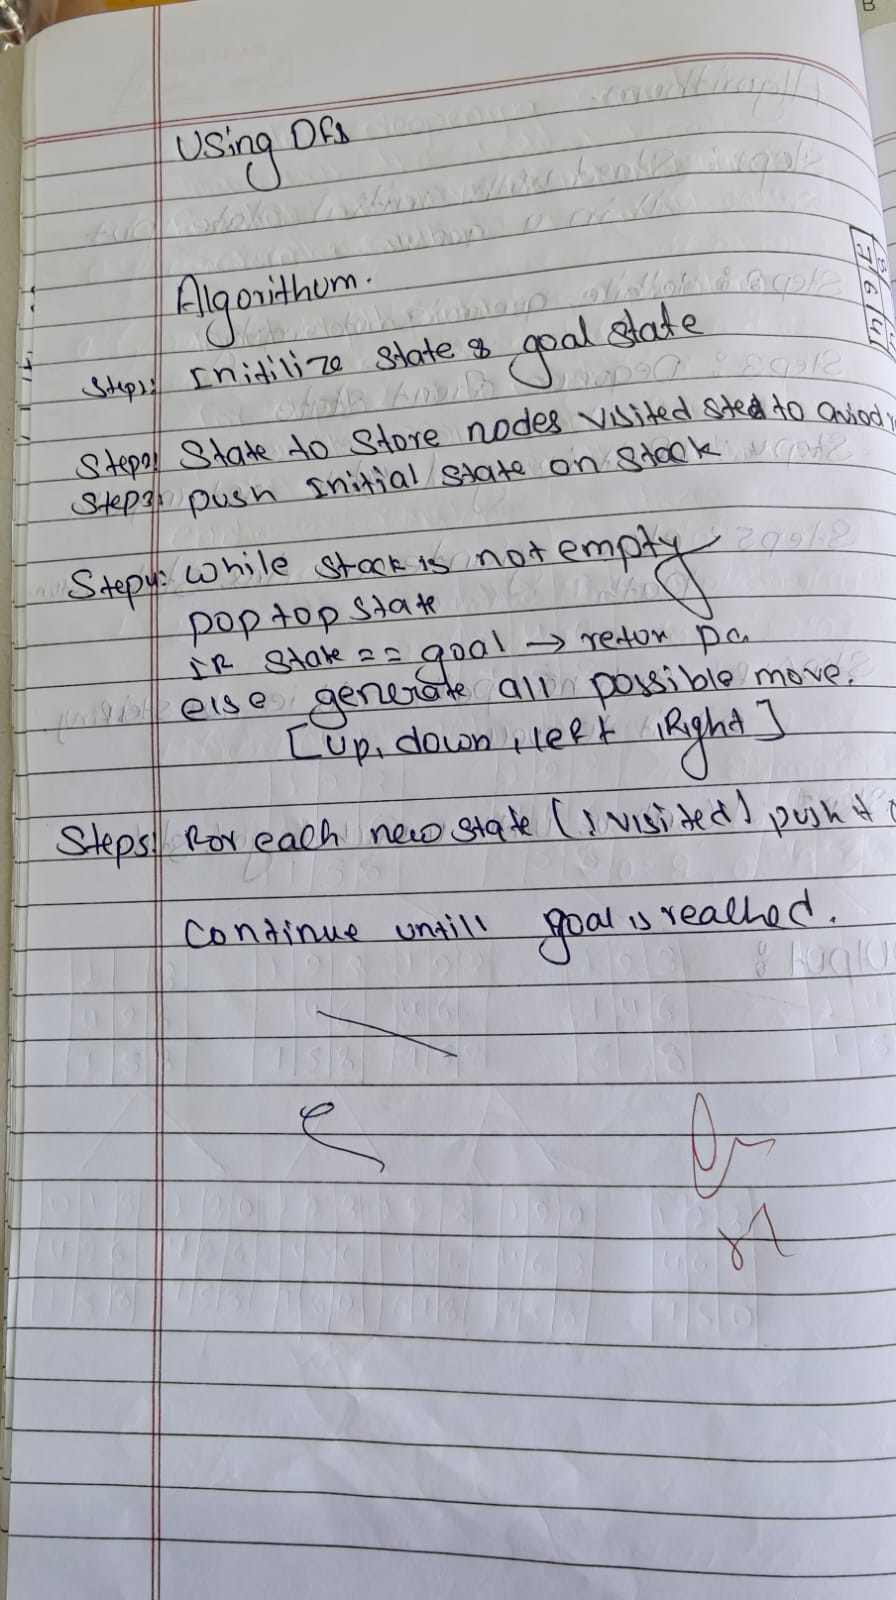 Using DFS
Algorithum.
Step1: Initilize state & goal state
Step2: State to store nodes visited to
Step3: push initial state on stack
Step4: While stack is not empty
pop top state
IF state == goal → retur pa
else generate all possible move.
[up, down, left, Right]
Step5: For each new state (! visited) push it
Continue untill goal is reached.